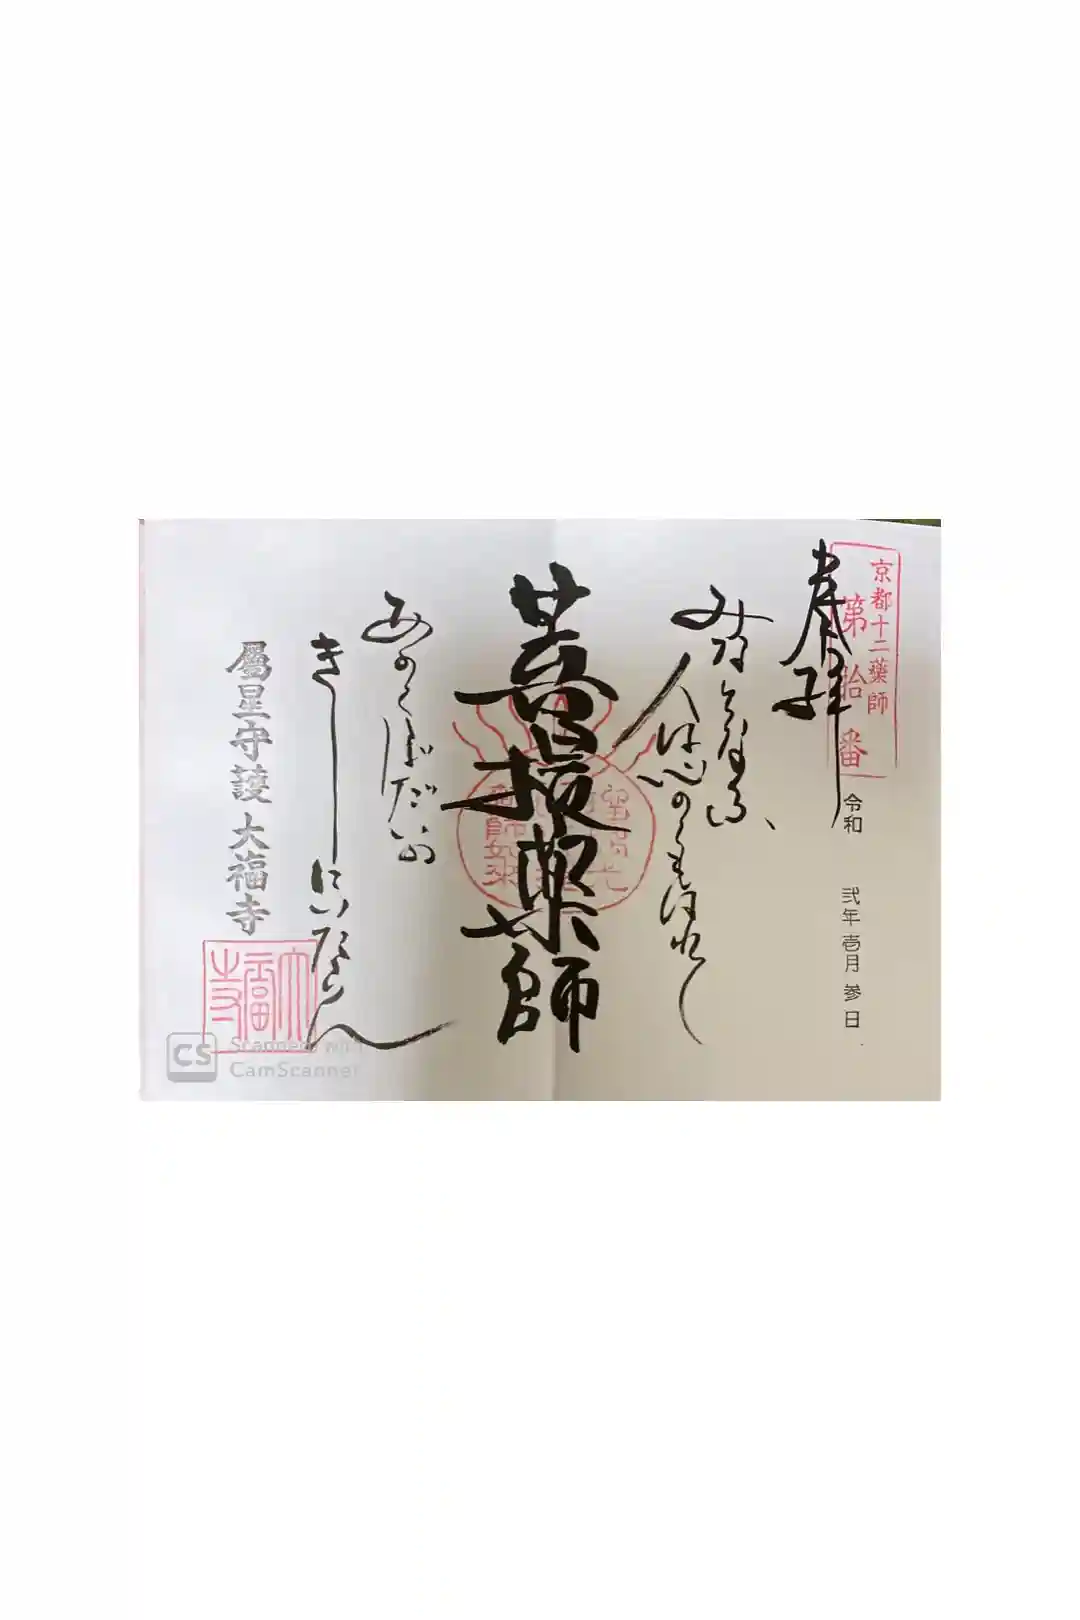 京都十二薬師
第拾番
奉拝
令和 弐年壱月参日
みなとなふ、
人は心のくもはれて
菩提薬師
瑠璃光
薬師如来
あのくぼだいの
きしにいたらん
屬星守護 大福寺
大福寺
CS Scanned with
CamScanner